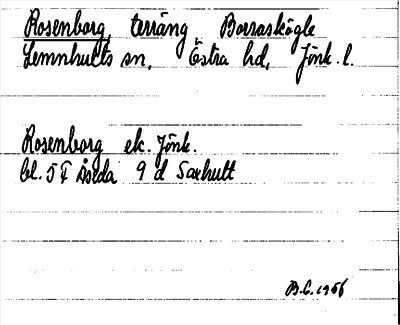 Rosenborg, terräng, Borraskögle
Lemnhults sn, Östra hd, Jönk. l.
Rosenborg ek. Jönk.
bl. 5 F Åseda 9 d Saxhult
B.C. 1956